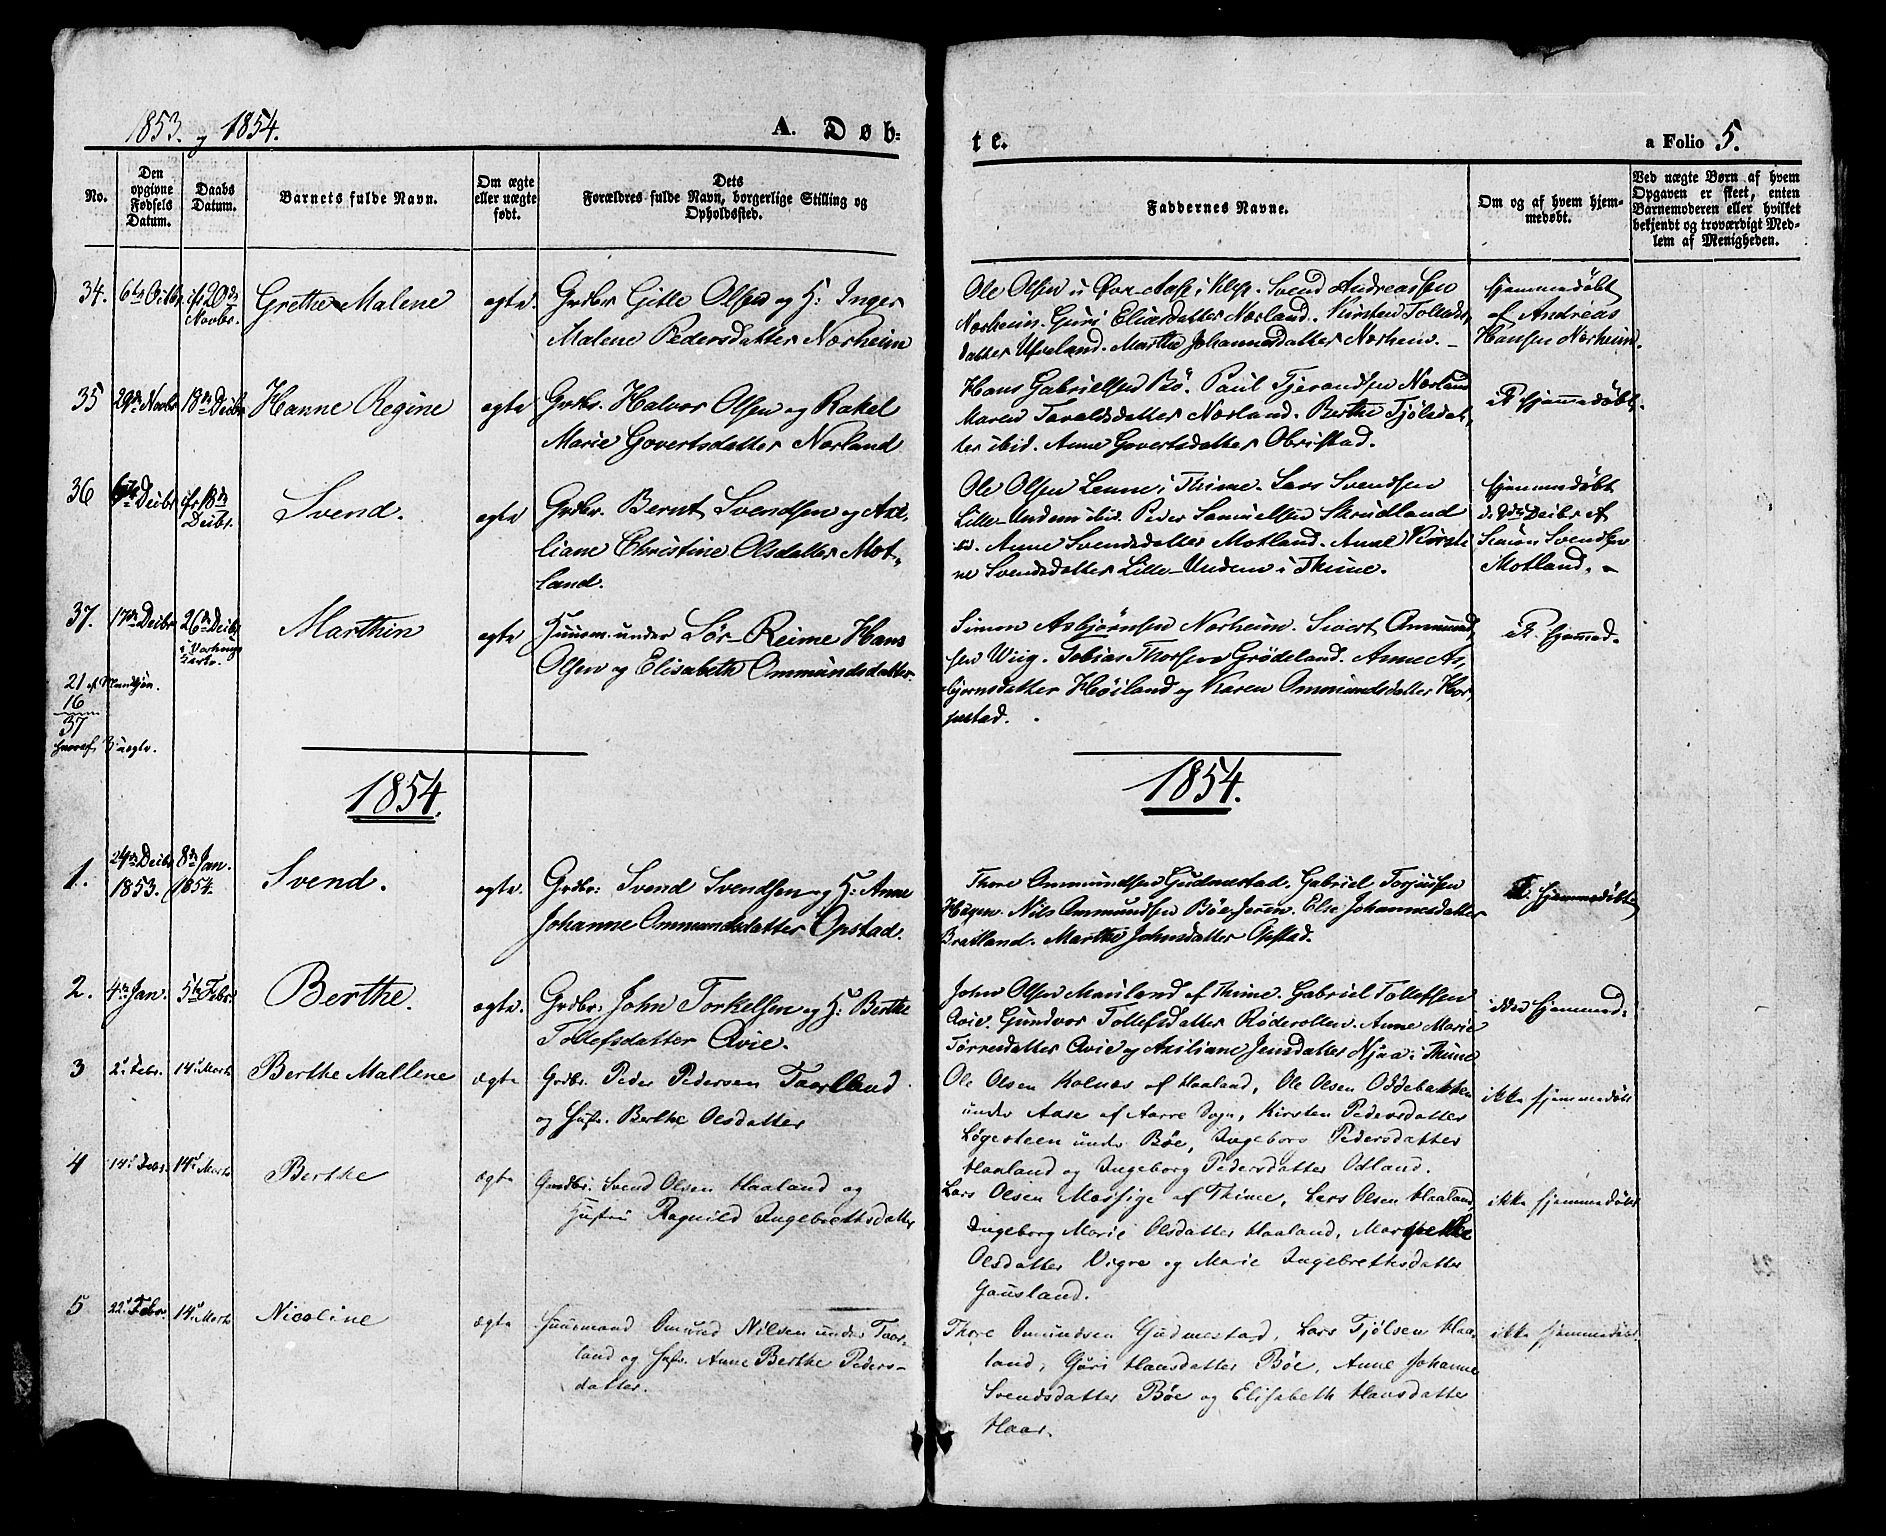 1853. og 1854.
A. Døb-
te.
a Folio 5.
No.
Den opgivne Fødsels Datum.
Daabs Datum.
Barnets fulde Navn.
Om ægte eller uægte født.
Dets Forældres fulde Navn, borgerlige Stilling og Opholdssted.
Faddernes Navne.
Om og af hvem hjemmedøbt.
Ved uægte Børn af hvem Opgaven er skeet, enten Barnemoderen eller hvilket bekjendt og troværdigt Medlem af Menigheden.
34.
20de Novbr.
Grethe Malene
ægte.
Grdbr. Gitle Olsen og H: Inger
Malene Pedersdatter Nærheim
Ole Olsen Aase i Klep. Svend Andreassen
Nærheim. Guri Eliasdatter Nærland. Kirsten
datter Ueland. Marthe Johannesdatter Nærheim.
hjemmedøbt
af Andreas
Hansen Nærheim.
35
29de Novbr
18de Decbr
Hanne Regine
ægte
Grdbr. Halvor Olsen og Rakel
Marie Govertsdatter Nærland
Hans Gabrielsen Bö. Paul Tjerandsen Nærland
Maren Taraldsdatter Nærland. Berthe Tjølsdat,
ter ibid. Anne Govertsdatter Obristad.
hjemmedøbt.
36
Decbr
18de
Decbr.
Svend.
ægte
Grdbr. Bernt Svendsen og Axe,
liane Christine Olsdatter Mot,
land.
Ole Olsen Lenne i Thime. Lars Svendsen
Lille-Undem ibid. Peder Samuelsen Skrudland
Anne Svendsdatter Motland. Anne Kirsti
ne Svendsdatter Lille-Undem i Thime.
hjemmedøbt
Decbr af
Simon Svendsen
Motland.
37.
17de Decbr
26de Decbr
Marthin
ægte
Huusm. under Sør-Reime Hans
Olsen og Elisabeth Ommundsdatter.
Simon Asbjørnsen Nærheim. Sivert Ommund,
sen Wiig. Tobias Thorsen Grødeland. Anne As,
bjørnsdatter Høiland og Karen Ommundsdatter Hor,
pestad.
21 af Mandkjøn.
16
37
heraf 3 uægte.
1854.
1854.
1.
24de Decbr
1853.
8de Jan.
1854.
Svend.
ægte.
Grdbr: Svend Svendsen og H: Anne
Johanne Ommundsdatter Opstad.
Thore Ommundsen Gudmestad. Gabriel Torjussen
Haugen. Nils Ommundsen Bøe-Jeren. Else Johannesdatter
Bratland. Marthe Johnsdatter Opstad.
hjemmedøbt
2.
4de Jan.
5te Febr.
Berthe.
ægte.
Grdbr: John Torkelsen og H: Berthe
Tollefsdatter Qvie.
John Olsen Mauland af Thime. Gabriel Tollefsen
Qvie. Gundvor Tollefsdatter Røderollen. Anne Marie
Torresdatter Qvie og Axiliane Jensdatter Njaa i Thime
ikke hjemmed.
3
2d Febr.
14d Marts
Berthe Mallene
ægte
Grdbr. Peder Pedersen Taarland
og Husr. Berthe Olsdatter
Ole Olsen Kolnes af Haaland, Ole Olsen Oddebakken
under Aase af Aarre Sogn, Kirsten Pedersdatter
Løgesteen under Bøe, Ingeborg Pedersdatter
Haaland og Ingeborg Pedersdatter Odland.
ikke hjemmedøbt
4
14d Febr.
14d Marts
Berthe
ægte
Gaardbr. Svend Olsen Haaland og
Hustru Ragnild Ingebrethsdatter
Lars Olsen Mossige af Thime, Lars Olsen Haaland,
Ingeborg Marie Olsdatter Haaland, Marthe
Olsdatter Vigre og Marie Ingebrethsdatter
Gausland.
ikke hjemmedøbt
5
22d Febr.
14d Marts
Nicoline
ægte
Huusmand Omund Nilsen under Taar-
land og Husr. Anne Berthe Peders-
datter.
Thore Omundsen Gudmestad, Lars Tjølsen Haa-
land, Guri Hansdatter Bøe, Anne Johanne
Svendsdatter Bøe og Elisabeth Hansdatter
Haar.
ikke hjemmedøbt